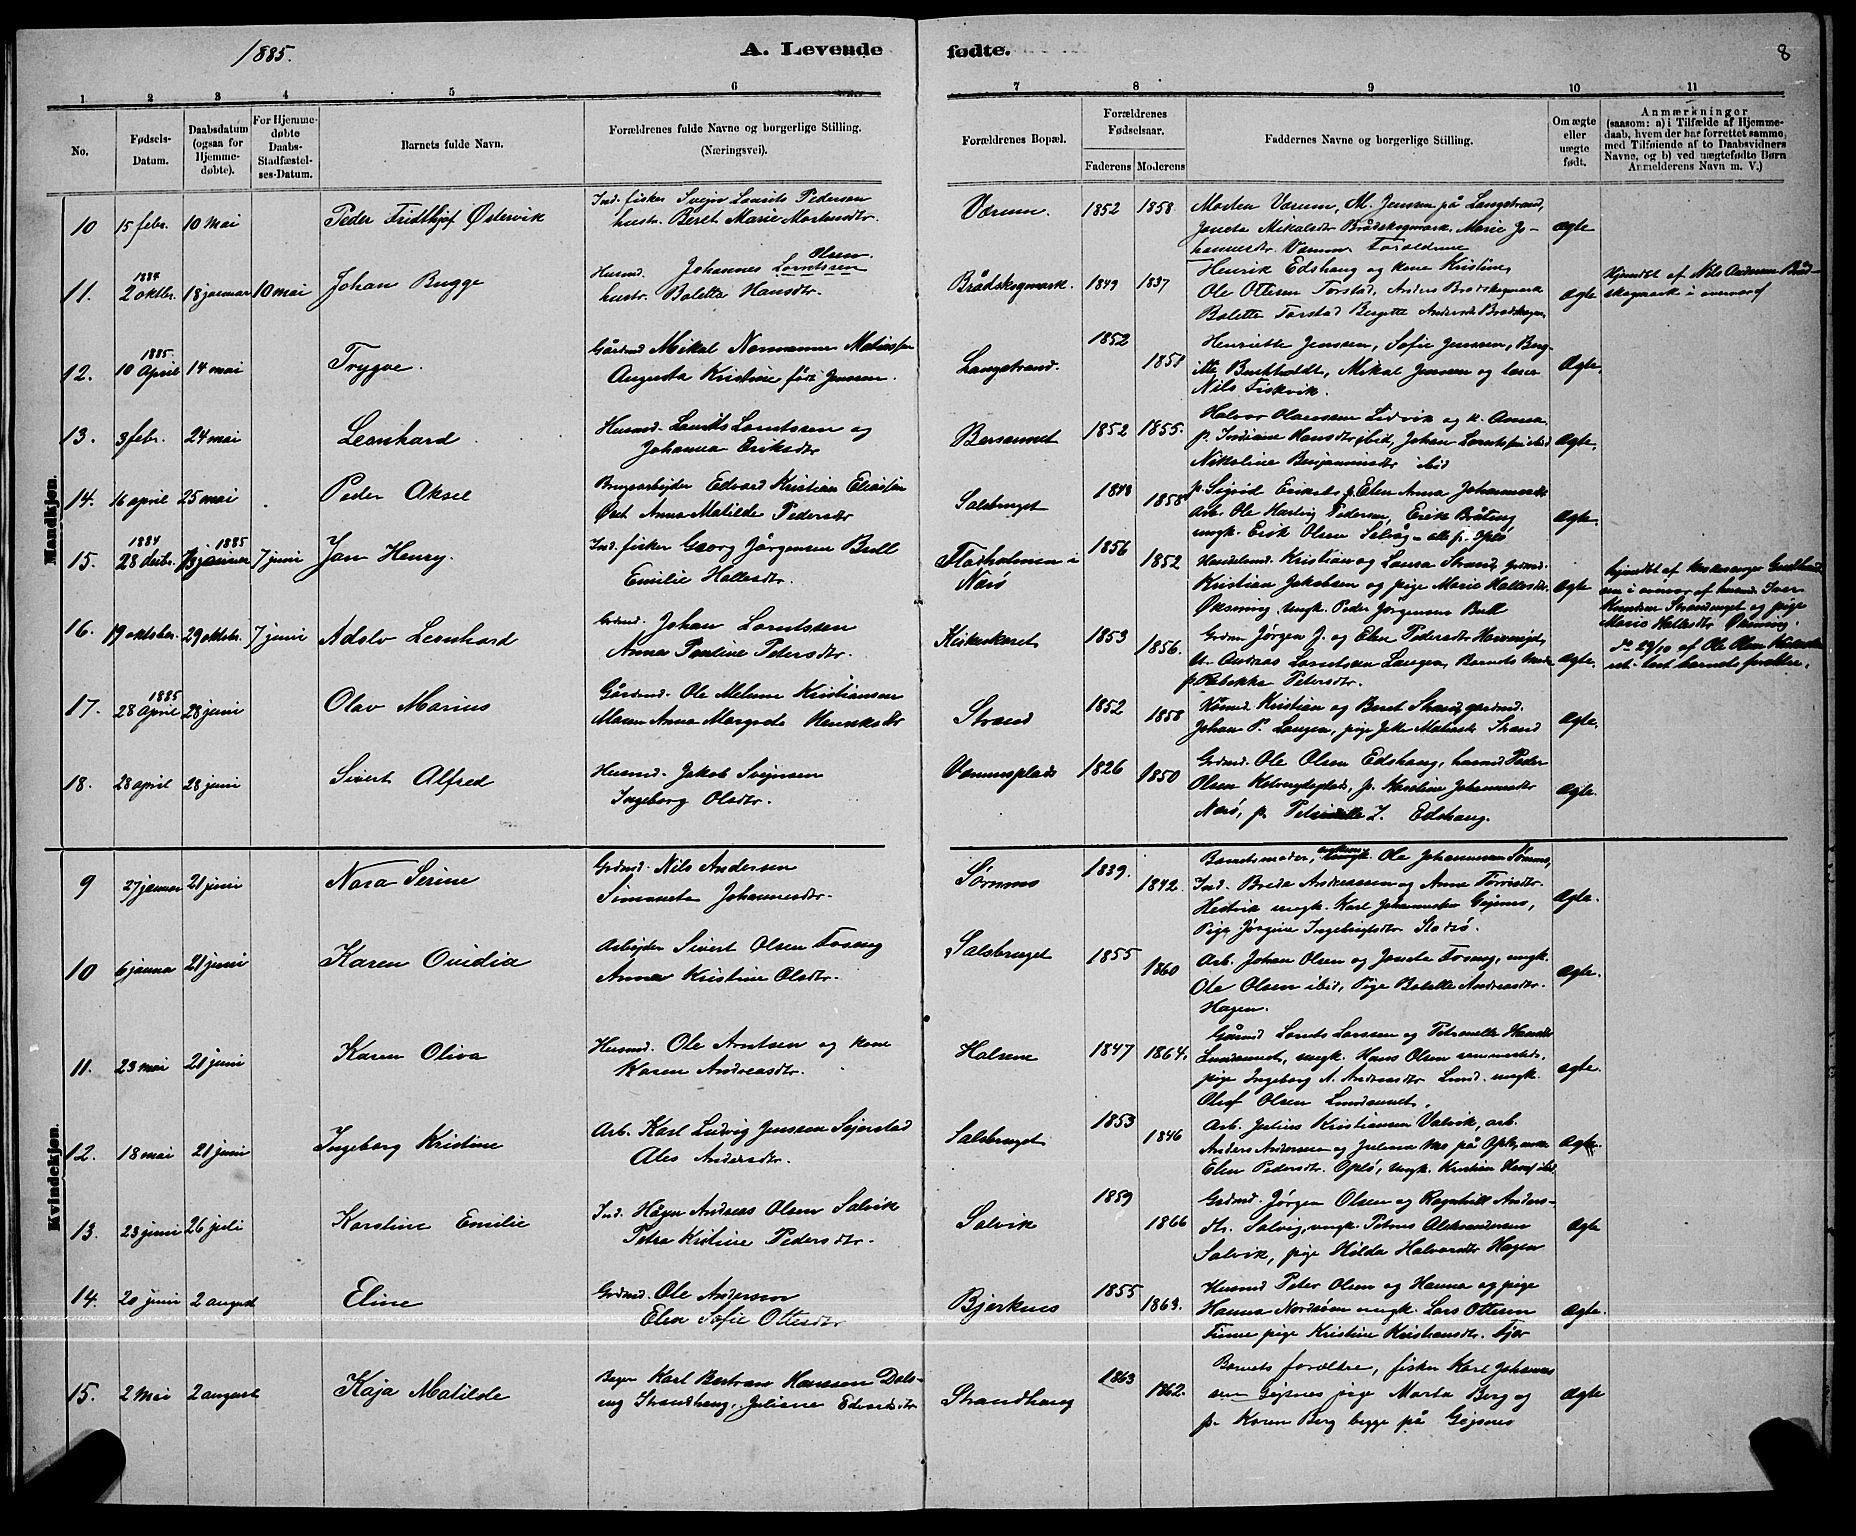 1885.
A. Levende fødte.
8
1 2 3 4 5 6 7 8 9 10 11
No.
Fødsels-Datum.
Daabsdatum (ogsaa for Hjemmedøbte).
For Hjemmedøbte Daabs-Stadfæstelses-Datum.
Barnets fulde Navn.
Forældrenes fulde Navne og borgerlige Stilling. (Næringsvei).
Forældrenes Bopæl.
Forældrenes Fødselsaar.
Faderens Moderens
Faddernes Navne og borgerlige Stilling.
Om ægte eller uægte født.
Anmærkninger (saasom: a) i Tilfælde af Hjemmedaab, hvem der har forrettet samme, med Tilføiende af to Daabsvidners Navne, og b) ved uægtefødte Børn Anmelderens Navn m. V.)
Mandkjøn.
10 15 febr. 10 mai Peder Fridthjof Østervik
Ind. fisker Svejn Laurits Pedersen
hustr. Beret Marie Mortensdtr.
Værum. 1852 1858
Morten Værum, M. Jenssen på Langstrand,
Joneta Mikalsdtr Brådskogmark, Marie Jo-
hannesdtr. Værum Forældrene
ægte
11. 1884 2 oktbr. 18 januar 10 mai Johan Bugge
Husmd. Johannes Lorntssen Olsen.
hustr. Boletta Hansdtr.
Brådskogmark. 1849 1837
Henrik Edshaug og kone Kristine,
Ole Ottesen Torstad, Anders Brodskogmark
Bolette Torstad Bergitte Andersdtr Brodskogm.
ægte
hjemdbt af Nils Andersen Bråd-
skogmark i overvær af
12. 1885. 10 April 14 mai Trygve.
Gårdmd Mikal Normann Matiassen
Augusta Kristine født Jenssen.
Langstrand. 1852 1858
Henriette Jenssen, Sofie Jenssen, Berg-
itte Buchholdt, Mikal Jenssen og lærer
Nils Fiskvik.
Ægte.
13. 3 febr. 24 mai Leonhard
Husmd. Laurits Lorntssen og
Johanna Eriksdtr
Bersamnet 1852 1855.
Halvor Olaussen Lidvik og k. Anna
p. Jordiane Hansdtr, ibid, Johan Lorntssen ibid
Nikoline Benjaminsdtr ibid
ægte.
14. 16 april 25 mai Peder Aksel
Brugsarbejder Edvard Kristian Eliassen
Øvst Anna Matilde Pedersdtr
Salsbruget 1848 1858
p. Sigrid Eriksdtr, p. Elen Anna Johannesdtr
arb. Ole Hartvig Pedersen, Erik Bråting,
ungk. Erik Olsen Selvåg – alle p. Oplø
ægte.
15. 1884 28 decbr. 1885 januar 7 juni Jan Henry.
Ind. fisker Georg Jørgensen Bull
Emilie Hallesdtr.
Flasholmen i
Nærø
1856 1852
Handelsmd. Kristian og Laura Strand, Grdmd.
Kristian Jakobsen og pige Marie Hallesdtr.
Øksning, ungk. Peder Jørgensen Bull
ægte
16. 19 oktober. 29 oktbr. 7 juni Adolv Leonhard
Grdmd. Johan Lorntssen
Anna Pauline Petersdtr.
Kirkeskaret 1853 1856.
Grdm Jørgen J. og Elen Pedersdtr
U. Andreas Lorntsen Langen, Barnets Moder
p. Rebekka Petersdtr.
ægte.
17. 1885 28 April 28 juni Olav Marius
Gårdmd. Ole Melum Kristiansen
Maren Anna Margrete Henriksdtr
Strand 1852 1858
Kristian og Beret Strand, gårdmd.
Johan P. Langen, pige Strand
ægte.
18. 28 april 28 juni Sivert Alfred
Husmd. Jakob Svejnsen
Ingeborg Olsdtr.
Værumsplads 1826 1850
Grdmd. Ole Olsen Edshaug, husmd Peder
Olsen , p. Kristine Johannesdtr
Nærø, p. Petronelle J. Edshaug.
ægte.
Kvindekjøn.
9 27 januar 21 juni Nora Serine
Grdmd. Nils Andersen
Simoneta Johannesdtr.
Sørnmo 1839. 1842.
Barnets moder, ungk. Ole Johannessen Sørnmo,
Ind. Breda Andreassen og Anna Torrisdtr.
Hestvik ungk. Karl Johannessen Gejsnes,
Pige Jørgine Ingebrigtsdtr Stadsø.
ægte.
10 6 januar 21 juni Karen Ovidia
Arbejder Sivert Olsen Fosung
Anna Kristine Olsdtr.
Salsbruget 1855 1860
Arb. Johan Olsen og Joneta Fosung, ungk.
Ole Olsen ibid, Pige Bolette Andreasdtr.
Hagen.
ægte.
11. 23 mai 21 juni Karen Oliva
Husmd. Ole Arntsen og kone
Karen Andreasdtr.
Halsene 1847 1864.
Gårmd Lornts Larssen og Petronelle Hansdtr
Lundamnet, ungk. Hans Olsen sammesteds.
pige Ingeborg A. Andreasdtr Lund. ungk.
Oluf Olsen Lundamnet.
ægte.
12. 18 mai 21 juni Ingeborg Kristine
Arb. Karl Ludvig Jenssen Sejerstad
Ales Andersdtr.
Salsbruget 1853 1846
Arb. Julius Kristiansen Valvik, arb.
Anders Andersen og Juliana Mo på Oplø, enke
Elen Pedersdtr. Oplø, ungk. Kristian Olsen ibid
ægte.
13. 23 juni 26 juli Karstine Emilie
Ind. Hågen Andreas Olsen Salvik
Petra Kristine Pedersdtr.
Salvik 1859 1866
Grdmd. Jørgen Olsen og Ragnhild Anders-
dtr. Salvig, ungk. Petrus Aleksandersen
Salvik, pige Hilda Halvorsdtr Hagen
ægte
14. 20 juni 2 august Eline
Grdmd. Ole Andersson
Elen Sofie Ottesdtr
Bjerknes 1855 1863.
Husmd Peter Olsen og Hanna og pige
Hanna Nordsøen ungk. Lars Ottesen
Finne pige Kristine Kristiansdtr. Fjær
ægte.
15. 2 Mai 2 august Kaja Matilde
Bager Karl Bertram Hanssen Dals-
eng Strandhaug, Juliane Edvardsdtr
Strandhaug 1863 1862.
Barnets forældre, fisker Karl Johannes
sen Gejsnes pige Marta Berg og
p. Karen Berg begge på Gejsnes
ægte